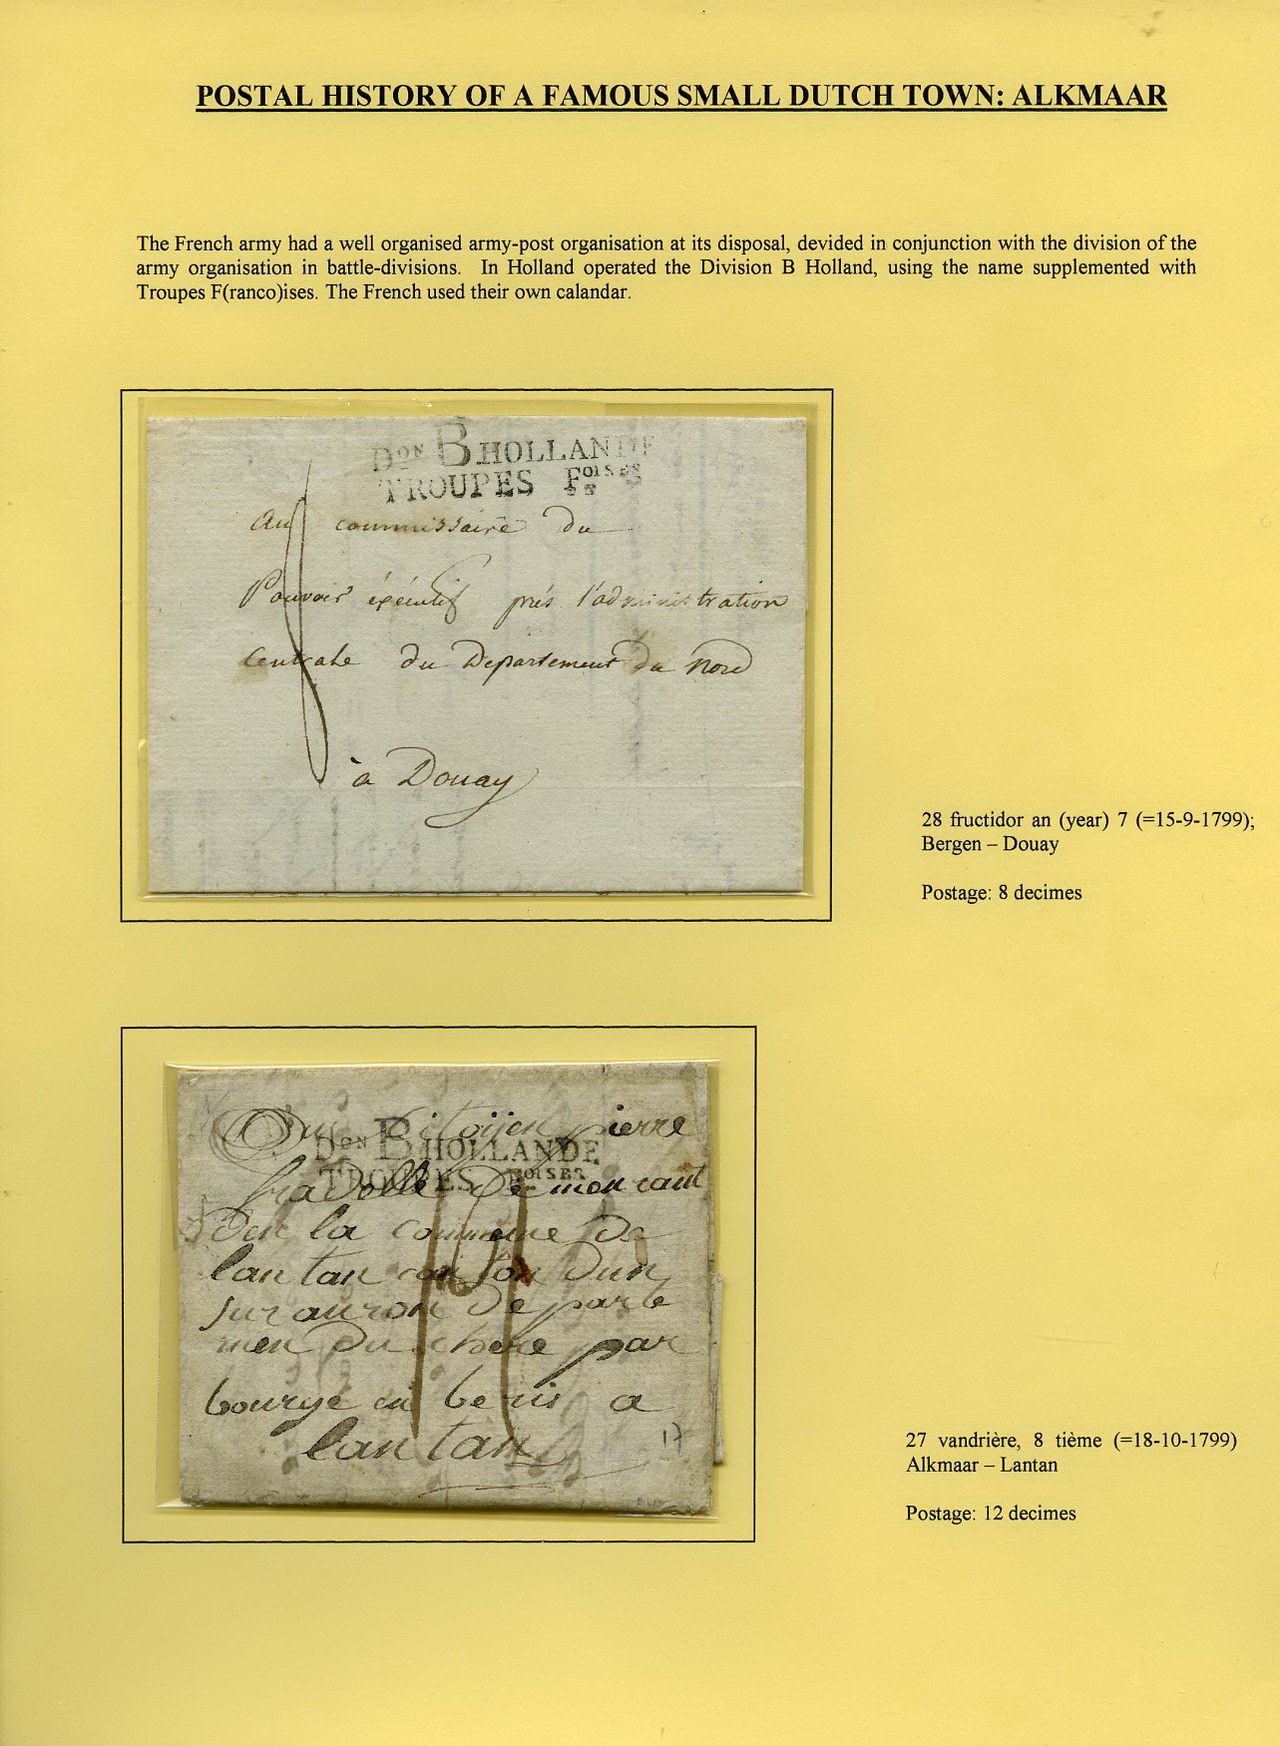 POSTAL HISTORY OF A FAMOUS SMALL DUTCH TOWN: ALKMAAR
The French army had a well organised army-post organisation at its disposal, devided in conjunction with the division of the
army organisation in battle-divisions. In Holland operated the Division B Holland, using the name supplemented with
Troupes F(ranco)ises. The French used their own calandar.
DON B HOLLANDE
TROUPES FOISES
Au commissaire du
Pouvoir éxécutif près l'administration
Centrale du Departement du Nord
à Douay
28 fructidor an (year) 7 (=15-9-1799);
Bergen – Douay
Postage: 8 decimes
citoijen pierre
DON B HOLLANDE
TROUPES FOISES
de mourant
la commune de
lantan canton dun
sur auron departe
men du chere par
bourge en beris a
lantan
17
27 vandrière, 8 tième (=18-10-1799)
Alkmaar – Lantan
Postage: 12 decimes